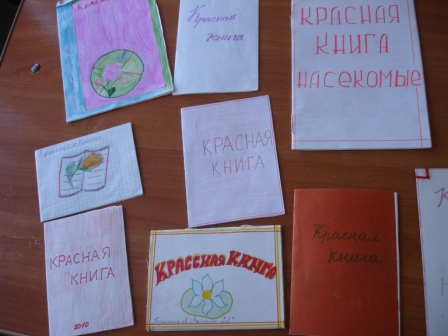 Красная
Книга
КРАСНАЯ
КНИГА
НАСЕКОМЫЕ
КРАСНАЯ
КНИГА
КРАСНАЯ
КНИГА
2010
КРАССНАЯ КНИГА
Красная
книга